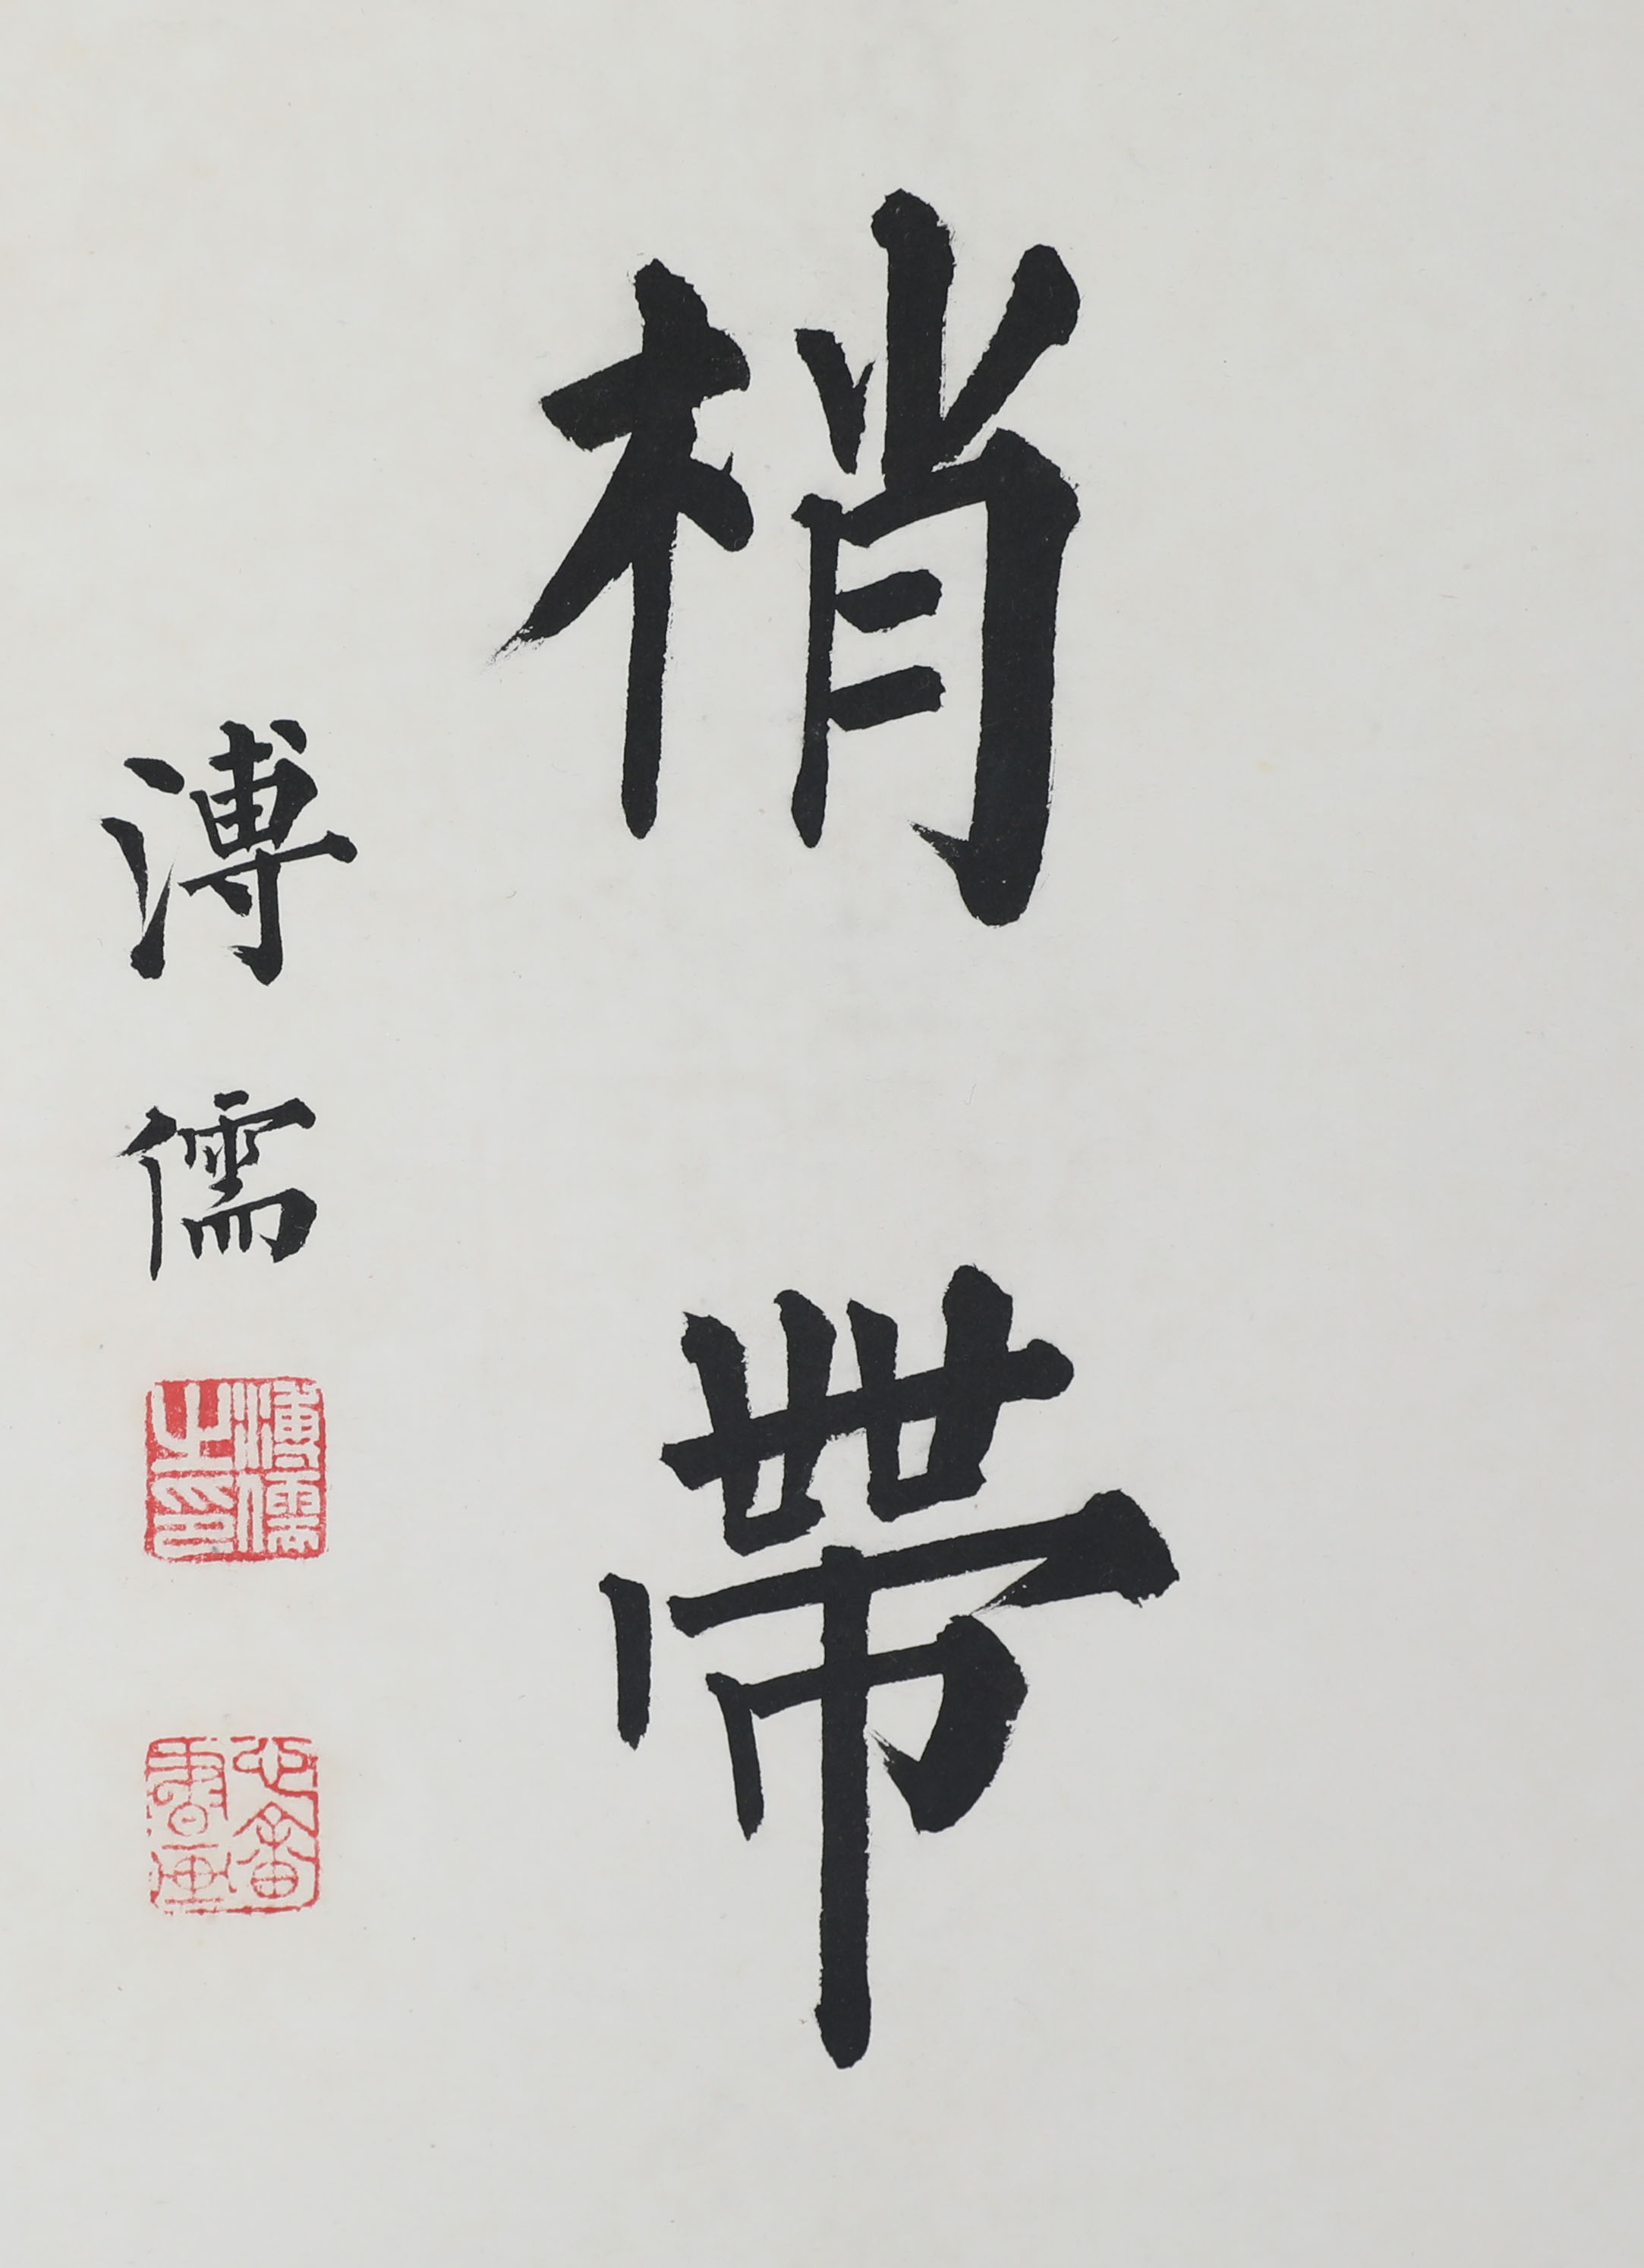 梢帶
溥儒
溥儒
之印
心畬
書畫